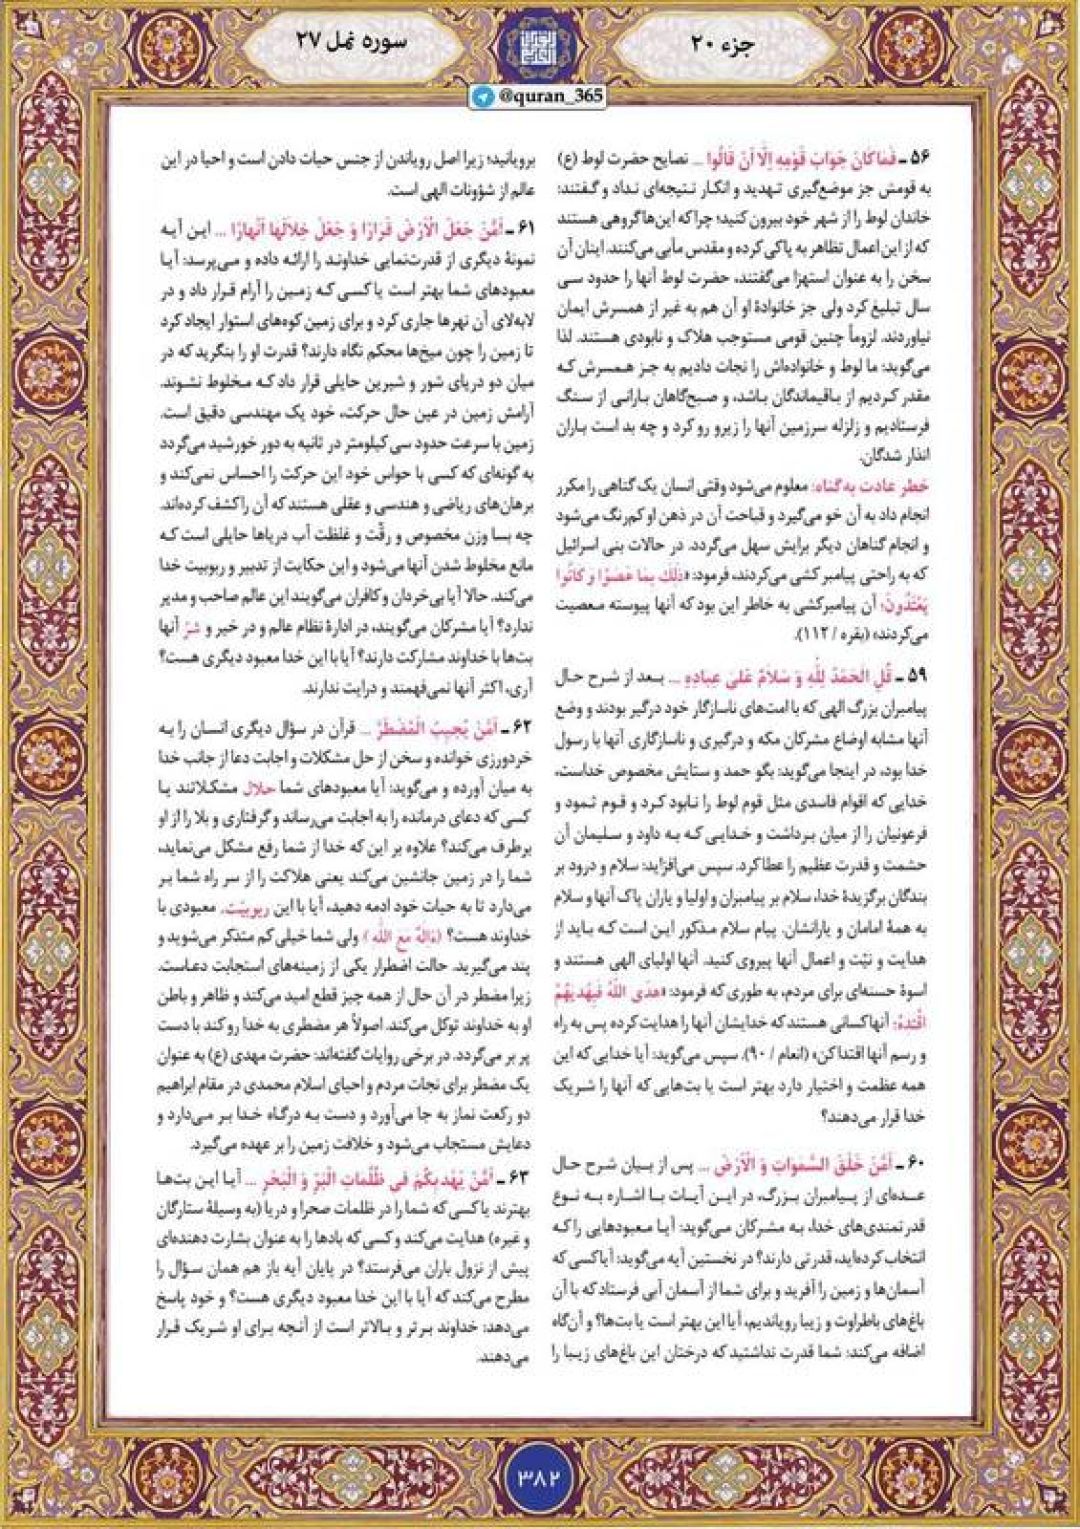 جزء ۲۰
سوره نمل ۲۷
@quran_365
۵۶ ـ فَمَا كَانَ جَوَابَ قَوْمِهِ إِلَّا أَنْ قَالُوا ... نصایح حضرت لوط (ع)
به قومش جز موضع‌گیری تهدید و انکار نتیجه‌ای نداد و گفتند:
خاندان لوط را از شهر خود بیرون کنید؛ چرا که این‌ها گروهی هستند
که از این اعمال تظاهر به پاکی کرده و مقدس مآبی می‌کنند. اینان آن
سخن را به عنوان استهزا می‌گفتند، حضرت لوط آنها را حدود سی
سال تبلیغ کرد ولی جز خانوادهٔ او آن هم به غیر از همسرش ایمان
نیاوردند. لزوماً چنین قومی مستوجب هلاک و نابودی هستند. لذا
می‌گوید: ما لوط و خانواده‌اش را نجات دادیم به جز همسرش که
مقدر کردیم از باقیماندگان باشد، و صبح‌گاهان بارانی از سنگ
فرستادیم و زلزله سرزمین آنها را زیرو رو کرد و چه بد است باران
انذار شدگان.
خطر عادت به گناه: معلوم می‌شود وقتی انسان یک گناهی را مکرر
انجام داد به آن خو می‌گیرد و قباحت آن در ذهن او کم‌رنگ می‌شود
و انجام گناهان دیگر برایش سهل می‌گردد. در حالات بنی اسرائیل
که به راحتی پیامبر کشی می‌کردند، فرمود: «ذَلِكَ بِمَا عَصَوْا وَ كَانُوا
يَعْتَدُونَ؛ آن پیامبرکشی به خاطر این بود که آنها پیوسته معصیت
می‌کردند» (بقره / ۱۱۲).
۵۹ ـ قُلِ الْحَمْدُ لِلَّهِ وَ سَلَامٌ عَلَى عِبَادِهِ ... بعد از شرح حال
پیامبران بزرگ الهی که با امت‌های ناسازگار خود درگیر بودند و وضع
آنها مشابه اوضاع مشرکان مکه و درگیری و ناسازگاری آنها با رسول
خدا بود، در اینجا می‌گوید: بگو حمد و ستایش مخصوص خداست،
خدایی که اقوام فاسدی مثل قوم لوط را نابود کرد و قوم ثمود و
فرعونیان را از میان برداشت و خدایی که به داود و سلیمان آن
حشمت و قدرت عظیم را عطا کرد. سپس می‌افزاید: سلام و درود بر
بندگان برگزیدهٔ خدا، سلام بر پیامبران و اولیا و یاران پاک آنها و سلام
به همهٔ امامان و یارانشان. پیام سلام مذکور این است که باید از
هدایت و نیّت و اعمال آنها پیروی کنید. آنها اولیای الهی هستند و
اسوهٔ حسنه‌ای برای مردم، به طوری که فرمود: «هَدَى اللَّهُ فَبِهُدَيهُمُ
اقْتَدِهْ؛ آنها کسانی هستند که خدایشان آنها را هدایت کرده پس به راه
و رسم آنها اقتدا کن» (انعام / ۹۰). سپس می‌گوید: آیا خدایی که این
همه عظمت و اختیار دارد بهتر است یا بت‌هایی که آنها را شریک
خدا قرار می‌دهند؟
۶۰ ـ أَمَّنْ خَلَقَ السَّمَوَاتِ وَ الْأَرْضَ ... پس از بیان شرح حال
عده‌ای از پیامبران بزرگ، در این آیات با اشاره به نوع
قدرتمندی‌های خدا، به مشرکان می‌گوید: آیا معبودهایی را که
انتخاب کرده‌اید، قدرتی دارند؟ در نخستین آیه می‌گوید: آیا کسی که
آسمان‌ها و زمین را آفرید و برای شما از آسمان آبی فرستاد که با آن
باغ‌های باطراوت و زیبا رویاندیم، آیا این بهتر است یا بت‌ها؟ و آن‌گاه
اضافه می‌کند: شما قدرت نداشتید که درختان این باغ‌های زیبا را
برویانید؛ زیرا اصل رویاندن از جنس حیات دادن است و احیا در این
عالم از شؤونات الهی است.
۶۱ ـ أَمَّنْ جَعَلَ الْأَرْضَ قَرَارًا وَ جَعَلَ خِلَالَهَا أَنْهَارًا ... این آیه
نمونهٔ دیگری از قدرت‌نمایی خداوند را ارائه داده و می‌پرسد: آیا
معبودهای شما بهتر است یا کسی که زمین را آرام قرار داد و در
لابه‌لای آن نهرها جاری کرد و برای زمین کوه‌های استوار ایجاد کرد
تا زمین را چون میخ‌ها محکم نگاه دارند؟ قدرت او را بنگرید که در
میان دو دریای شور و شیرین حایلی قرار داد که مخلوط نشوند.
آرامش زمین در عین حال حرکت، خود یک مهندسی دقیق است.
زمین با سرعت حدود سی کیلومتر در ثانیه به دور خورشید می‌گردد
به گونه‌ای که کسی با حواس خود این حرکت را احساس نمی‌کند و
برهان‌های ریاضی و هندسی و عقلی هستند که آن را کشف کرده‌اند.
چه بسا وزن مخصوص و رقّت و غلظت آب دریاها حایلی است که
مانع مخلوط شدن آنها می‌شود و این حکایت از تدبیر و ربوبیت خدا
می‌کند. حالا آیا بی‌خردان و کافران می‌گویند این عالم صاحب و مدیر
ندارد؟ آیا مشرکان می‌گویند، در ادارهٔ نظام عالم و در خیر و شرّ آنها
بت‌ها با خداوند مشارکت دارند؟ آیا با این خدا معبود دیگری هست؟
آری، اکثر آنها نمی‌فهمند و درایت ندارند.
۶۲ ـ أَمَّنْ يُجِيبُ الْمُضْطَرَّ ... قرآن در سؤال دیگری انسان را به
خردورزی خوانده و سخن از حل مشکلات و اجابت دعا از جانب خدا
به میان آورده و می‌گوید: آیا معبودهای شما حلال مشکلاتند یا
کسی که دعای درمانده را به اجابت می‌رساند و گرفتاری و بلا را از او
برطرف می‌کند؟ علاوه بر این که خدا از شما رفع مشکل می‌نماید،
شما را در زمین جانشین می‌کند یعنی هلاکت را از سر راه شما بر
می‌دارد تا به حیات خود ادمه دهید، آیا با این ربوبیّت، معبودی با
خداوند هست؟ (ءَإِلَهٌ مَعَ اللَّهِ) ولی شما خیلی کم متذکر می‌شوید و
پند می‌گیرید. حالت اضطرار یکی از زمینه‌های استجابت دعاست.
زیرا مضطر در آن حال از همه چیز قطع امید می‌کند و ظاهر و باطن
او به خداوند توکل می‌کند. اصولاً هر مضطری به خدا رو کند با دست
پر بر می‌گردد. در برخی روایات گفته‌اند: حضرت مهدی (ع) به عنوان
یک مضطر برای نجات مردم و احیای اسلام محمدی در مقام ابراهیم
دو رکعت نماز به جا می‌آورد و دست به درگاه خدا بر می‌دارد و
دعایش مستجاب می‌شود و خلافت زمین را بر عهده می‌گیرد.
۶۳ ـ أَمَّنْ يَهْدِيكُمْ فِي ظُلُمَاتِ الْبَرِّ وَ الْبَحْرِ ... آیا این بت‌ها
بهترند یا کسی که شما را در ظلمات صحرا و دریا (به وسیلهٔ ستارگان
و غیره) هدایت می‌کند و کسی که بادها را به عنوان بشارت دهنده‌ای
پیش از نزول باران می‌فرستد؟ در پایان آیه باز هم همان سؤال را
مطرح می‌کند که آیا با این خدا معبود دیگری هست؟ و خود پاسخ
می‌دهد: خداوند برتر و بالاتر است از آنچه برای او شریک قرار
می‌دهند.
۳۸۲